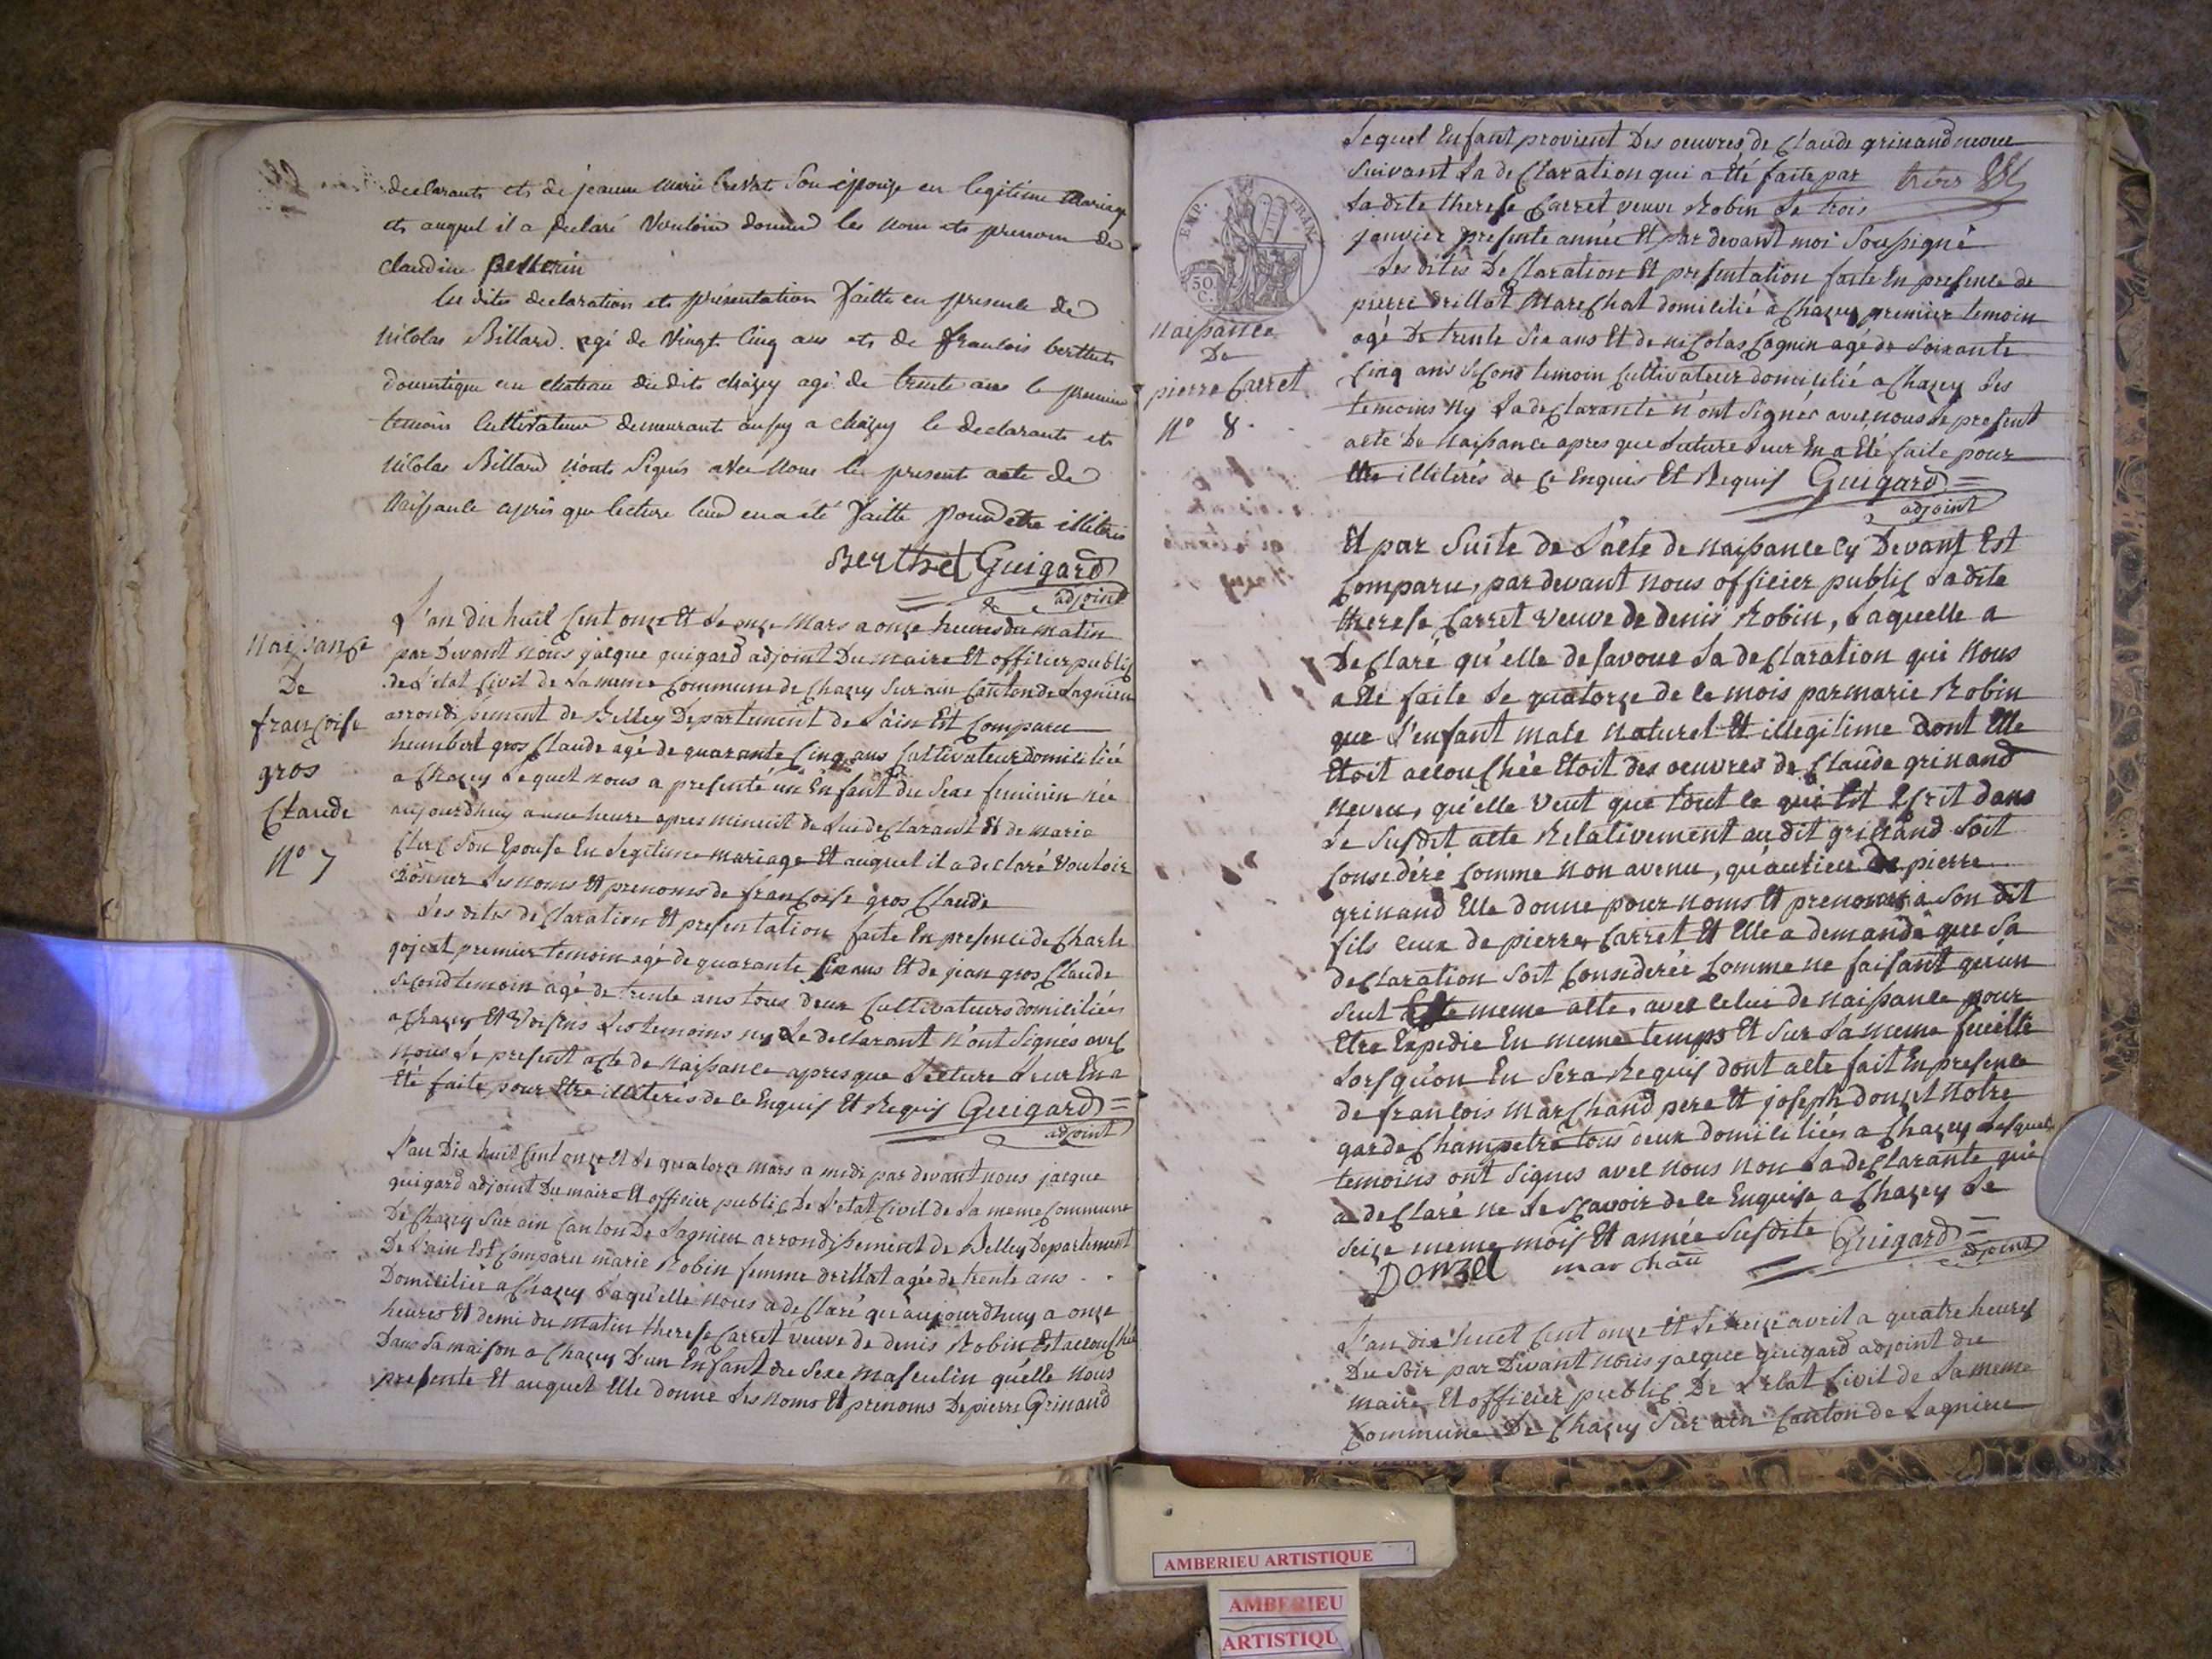 declarants et de jeanne marie Son épouse en legitime mariage
et auquel il a declaré vouloir donner les nom et prenom de
claudine
les dites declaration et présentation faitte en presence de
nicolas Billard agé de vingt cinq ans et de francois berthet
domestique au chateau du dit chazey agé de trente ans le premier
temoin cultivateur demeurant aussy a chazey le declarant et
nicolas Billard n'ont signés avec nous le present acte de
naissance après que lecture leur en a été faitte pour etre illiterés
Berthet Guigard
adjoint
Naissance
De
françoise
gros
Claude
N° 7
L'an dix huit Cent onze Et le onze Mars a onze heures du matin
par Devant nous jacque guigard adjoint Du maire Et officier public
de L'etat Civil de La meme Commune de Chazey Sur ain Canton de Lagnieu
arrondissement de Belley Departement de L'ain Est Comparu
humbert gros Claude agé de quarante Cinq ans Cultivateur domicilié
a Chazey Lequel nous a presenté un Enfant du Sexe feminin née
aujourdhuy a une heure apres minuit de Lui declarant Et de marie
Clerc Son Epouse En Legitime mariage Et auquel il a declaré vouloir
donner Les noms Et prenoms de françoise gros Claude
Les dites declaration Et presentation faite En presence de Charle
gojeat premier temoin agé de quarante ans Et de jean gros Claude
Second temoin agé de trente ans tous deux Cultivateurs domiciliés
a Chazey Et voisins Les temoins ny Le declarant n'ont Signés avec
nous Le present acte de naissance apres que Lecture Leur En a
Eté faite pour Etre illiterés de ce Enquis Et Requis Guigard
adjoint
L'an Dix huit Cent onze Et Le quatorze mars a midi par devant nous jacque
guigard adjoint Du maire Et officier public De L'etat Civil de La meme Commune
De Chazey Sur ain Canton De Lagnieu arrondissement de Belley Departement
De L'ain Est Comparu marie Robin femme drillat agée de trente ans
Domiciliée a Chazey Laqu'elle nous a declaré qu'aujourdhuy a onze
heures Et demi du matin therese Carret veuve de denis Robin Est accouchée
Dans Sa maison a Chazey D'un Enfant du Sexe masculin qu'elle nous
presente Et auquel Elle donne Les noms Et prenoms De pierre Grinand
EMP. FRAN.
50 C.
Naissance
De
pierre Carret
N° 8
Lequel Enfant provient Des oeuvres de Claude grinand neveu
Suivant La declaration qui a Eté faite par
La dite therese Carret veuve Robin Le trois
janvier presente année Et par devant moi Soussigné
Les dites Declaration Et presentation faite En presence de
pierre drillat Marechal domicilié a Chazey premier temoin
agé De trente Six ans Et de nicolas Cagnin agé de Soixante
Cinq ans Second temoin Cultivateur domicilié a Chazey Les
temoins ny La declarante n'ont Signés avec nous Le present
acte de naissance apres que Lecture Leur En a Eté faite pour
Etre illiterés de Ce Enquis Et Requis Guigard
adjoint
Et par Suite de L'acte de naissance Cy Devant Est
Comparu, par devant nous officier public La dite
therese Carret veuve de denis Robin, Laquelle a
declaré qu'elle desavoue La declaration qui nous
a Eté faite Le quatorze de ce mois par marie Robin
que L'enfant male naturel Et illegitime dont Elle
Etoit accouchée Etoit des oeuvres de Claude grinand
neveu, qu'elle veut que tout ce qui Est Ecrit dans
Le Susdit acte Relativement au dit grinand Soit
Consideré Comme non avenu, qu'au lieu De pierre
grinand Elle donne pour noms Et prenoms a Son dit
fils Ceux de pierre Carret Et Elle a demandé que Sa
declaration Soit Considerée Comme ne faisant qu'un
Seul Et meme acte, avec Celui de naissance pour
Etre Expedié En meme temps Et Sur La meme feuille
Lorsqu'on En Sera Requis dont acte fait En presence
de francois Marchand pere Et joseph donzel notre
garde Champetre tous deux domiciliés a Chazey Lesquels
temoins ont Signes avec nous non La declarante qui
a declaré ne Le Scavoir de Ce Enquise a Chazey Le
Seize meme mois Et année Susdite Guigard
Donzel marchan adjoint
L'an dix huit Cent onze Et Le avril a quatre heures
Du Soir par Devant nous jacque guigard adjoint du
maire Et officier public De L'etat Civil de La meme
Commune De Chazey Sur ain Canton de Lagnieu
AMBERIEU ARTISTIQUE
AMBERIEU
ARTISTIQU